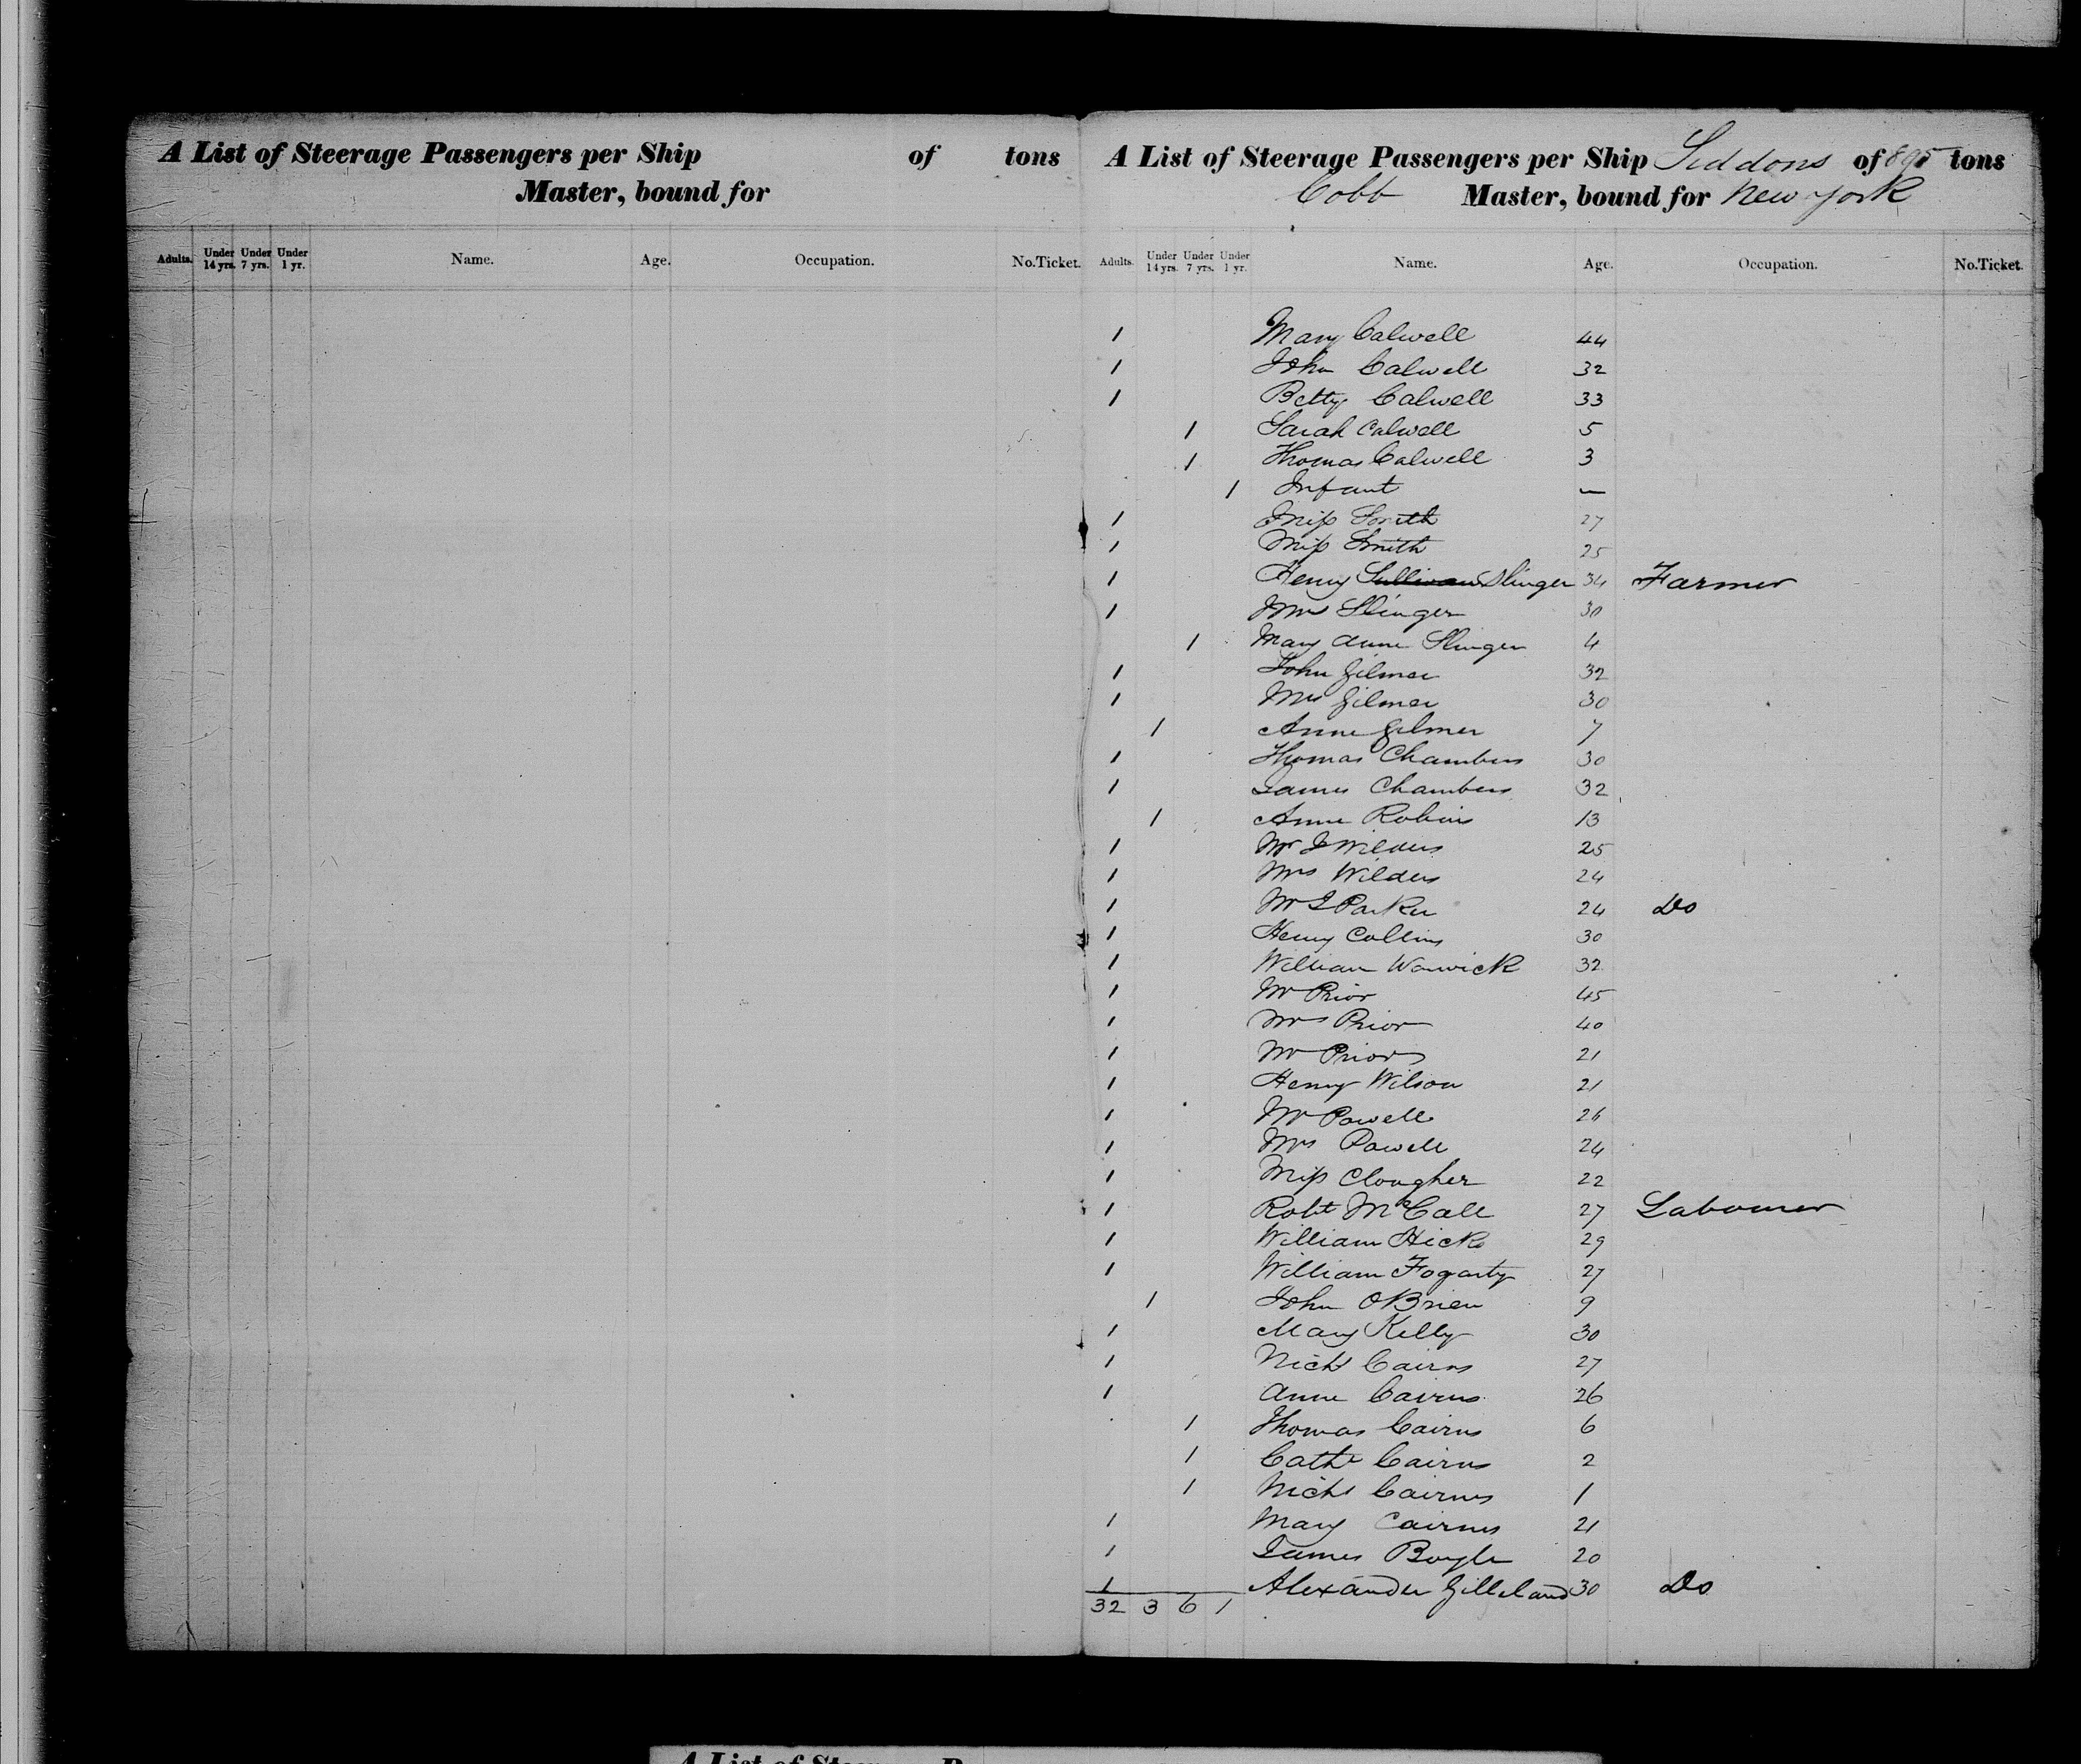 A List of Steerage Passengers per Ship of tons
Master, bound for
Adults. Under 14 yrs. Under 7 yrs. Under 1 yr. Name. Age. Occupation. No. Ticket.
A List of Steerage Passengers per Ship Siddons of 895 tons
Cobb Master, bound for New York
Adults. Under 14 yrs. Under 7 yrs. Under 1 yr. Name. Age. Occupation. No. Ticket.
1 Mary Calwell 44
1 John Calwell 32
1 Betty Calwell 33
1 Sarah Calwell 5
1 Thomas Calwell 3
1 Infant —
1 Miss Smith 27
1 Miss Smith 25
1 Henry Sullivan Slinger 34 Farmer
1 Mrs Slinger 30
1 Mary Anne Slinger 4
1 John Gilmer 32
1 Mrs Gilmer 30
1 Anne Gilmer 7
1 Thomas Chambers 30
1 James Chambers 32
1 Anne Robins 13
1 Mr J Wilders 25
1 Mrs Wilders 24
1 Mr J Parker 24 Do
1 Henry Collins 30
1 William Warwick 32
1 Mr Prior 45
1 Mrs Prior 40
1 Mr Prior 21
1 Henry Wilson 21
1 Mr Powell 26
1 Mrs Powell 24
1 Miss Clougher 22
1 Robt McCall 27 Labourer
1 William Hicks 29
1 William Fogarty 27
1 John OBrien 9
1 Mary Kelly 30
1 Nichs Cairns 27
1 Anne Cairns 26
1 Thomas Cairns 6
1 Cathe Cairns 2
1 Nichs Cairns 1
1 Mary Cairns 21
1 James Boyle 20
1 Alexander Gilleland 30 Do
32 3 6 1
A List of Steerage